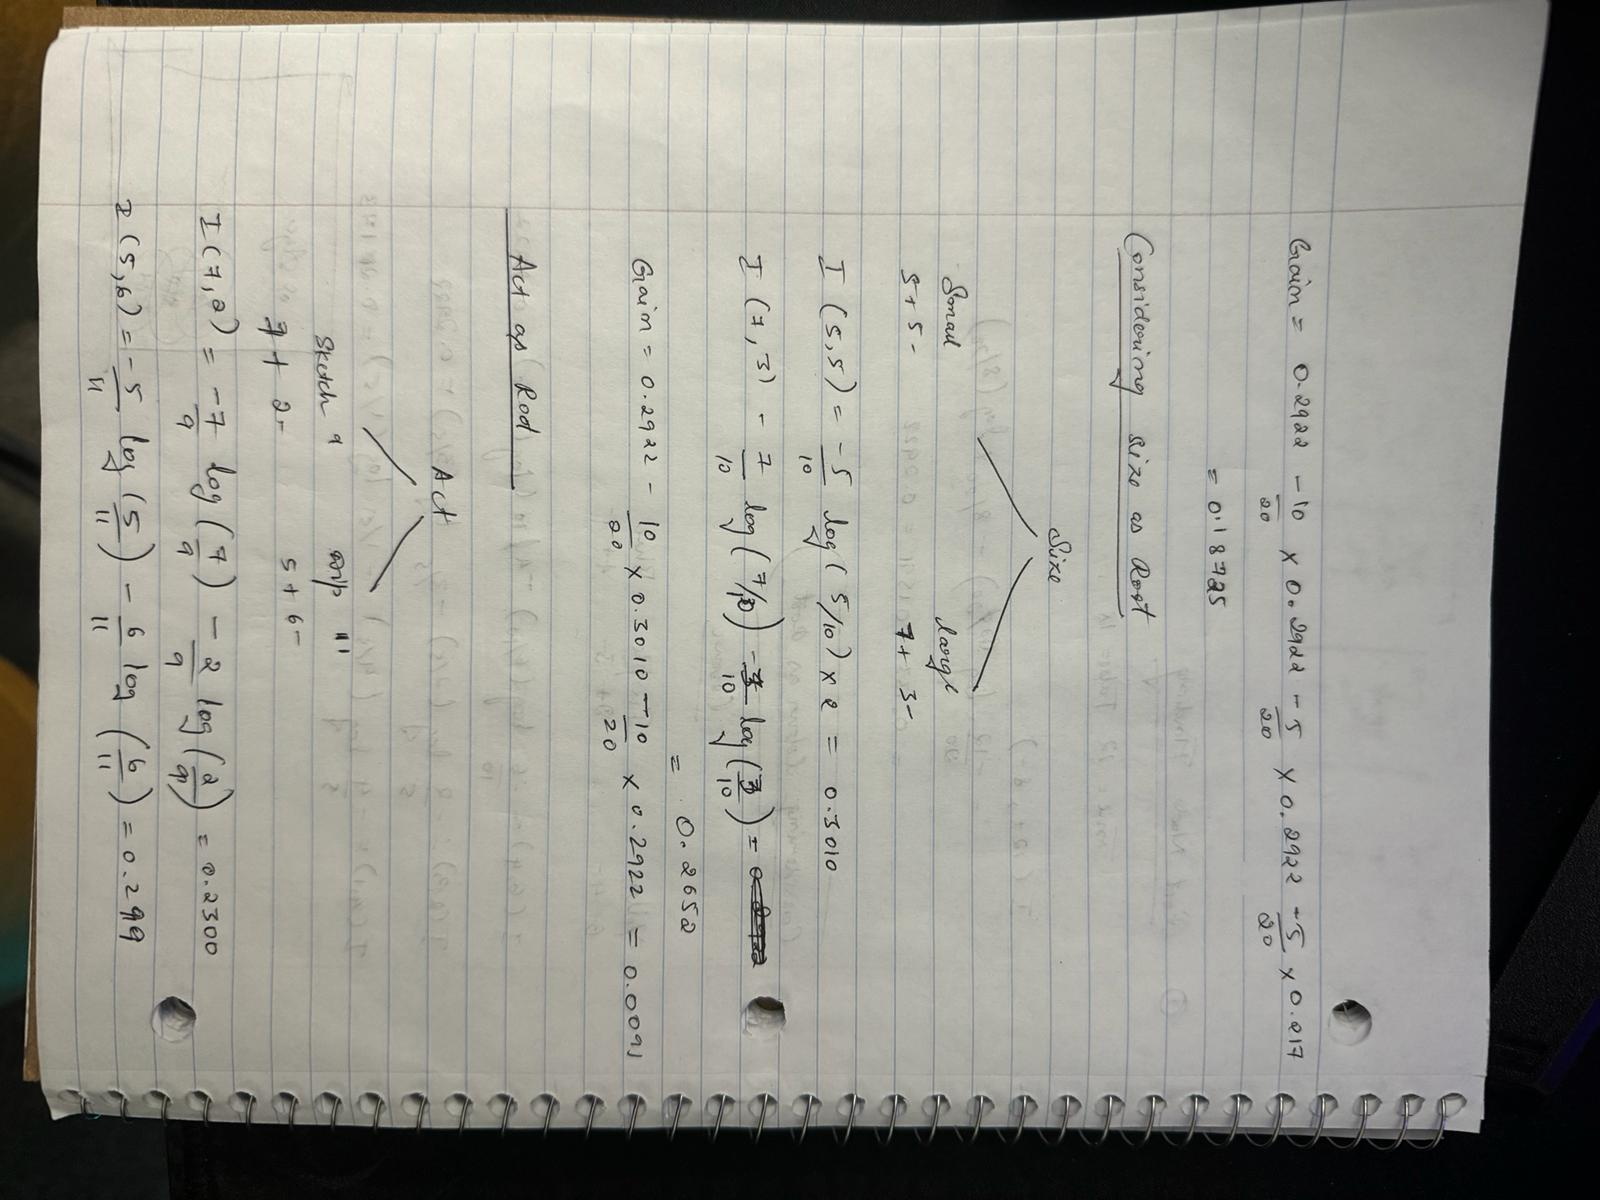 Gain = 0.2922 - 10/20 × 0.2922 - 5/20 × 0.2922 - 5/20 × 0.217
= 0.18725
Considering size as Root
Size
Small large
5+5- 7+3-
I (5,5) = -5/10 log (5/10) × 2 = 0.3010
I (7,3) - 7/10 log (7/10) - 3/10 log (3/10) =
= 0.2652
Gain = 0.2922 - 10/20 × 0.3010 - 10/20 × 0.2922 = 0.0091
Act as Root
Act
Sketch 9 11
7+2- 5+6-
I (7,2) = -7/9 log (7/9) - 2/9 log (2/9) = 0.2300
I (5,6) = -5/11 log (5/11) - 6/11 log (6/11) = 0.299